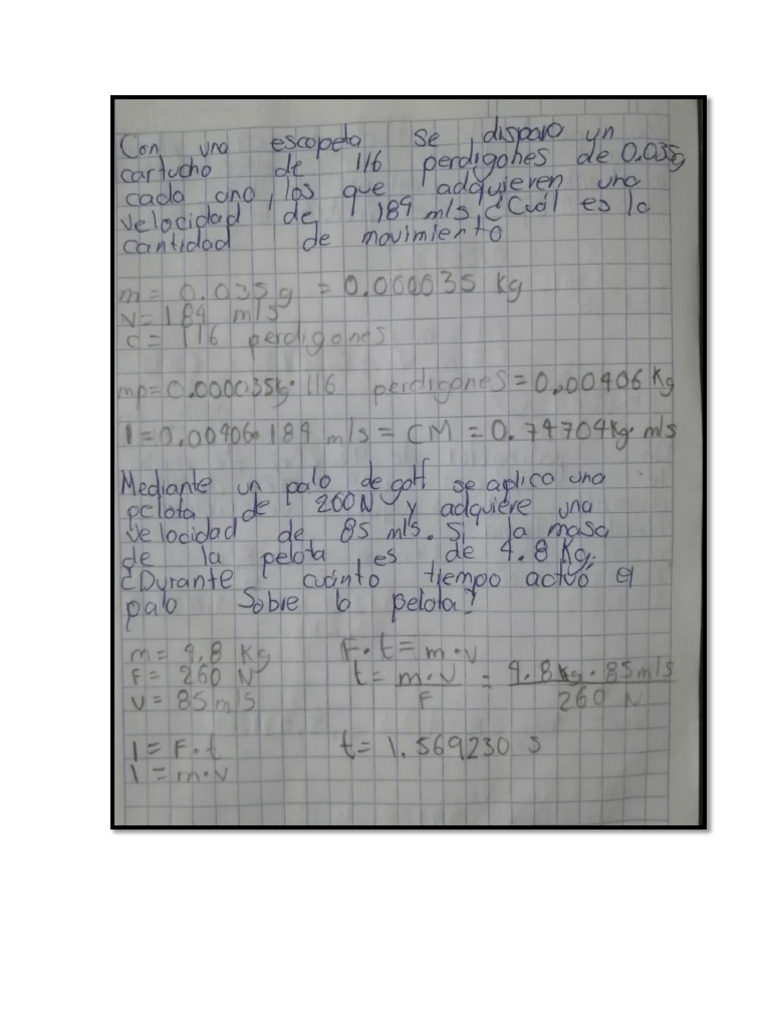 Con una escopeta se disparo un
cartucho de 116 perdigones de 0.035g
cada uno, los que adquieren una
velocidad de 184 m/s ¿Cuál es la
cantidad de movimiento
m= 0.035g = 0.000035 Kg
v=184 m/s
c= 116 perdigones
mp=0.000035k· 116 perdigones=0.00406 Kg
I=0.00406·184 m/s = CM = 0.74704Kg·m/s
Mediante un palo de golf se aplico una
pelota de 260N y adquiere una
velocidad de 85 m/s. Si la masa
de la pelota es de 4.8 Kg.
¿Durante cuánto tiempo actuó el
palo sobre la pelota?
m= 4.8 Kg F·t=m·v
F= 260 N t= m·v/F = 4.8 kg·85m/s/260 N
v= 85m/s
I= F·t t= 1.569230 s
I= m·v